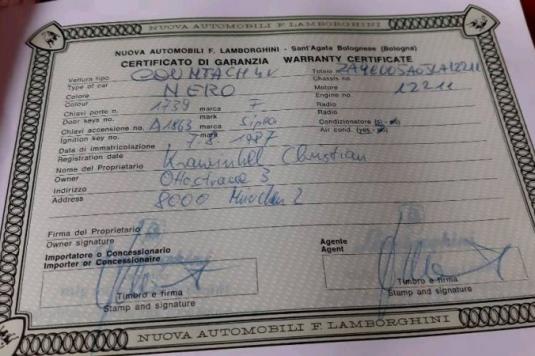 NUOVA AUTOMOBILI F. LAMBORGHINI
NUOVA AUTOMOBILI F. LAMBORGHINI - Sant'Agata Bolognese (Bologna)
CERTIFICATO DI GARANZIA WARRANTY CERTIFICATE
Vettura tipo COUNTACH 4V Telaio
Type of car Chassis no.
Colore NERO Motore 12211
Colour Engine no.
Chiavi porte n. 1739 marca 7 Radio
Door keys no. mark Radio
Chiavi accensione no. A1863 marca Sipea Condizionatore (si - no)
Ignition key no. mark Air cond. (yes - no)
Data di immatricolazione 1987
Registration date
Nome del Proprietario Christian
Owner
Indirizzo 3
Address 8000 München 2
Firma del Proprietario
Owner signature
Importatore o Concessionario Agente
Importer or Concessionaire Agent
Timbro e firma Timbro e firma
Stamp and signature Stamp and signature
NUOVA AUTOMOBILI F. LAMBORGHINI